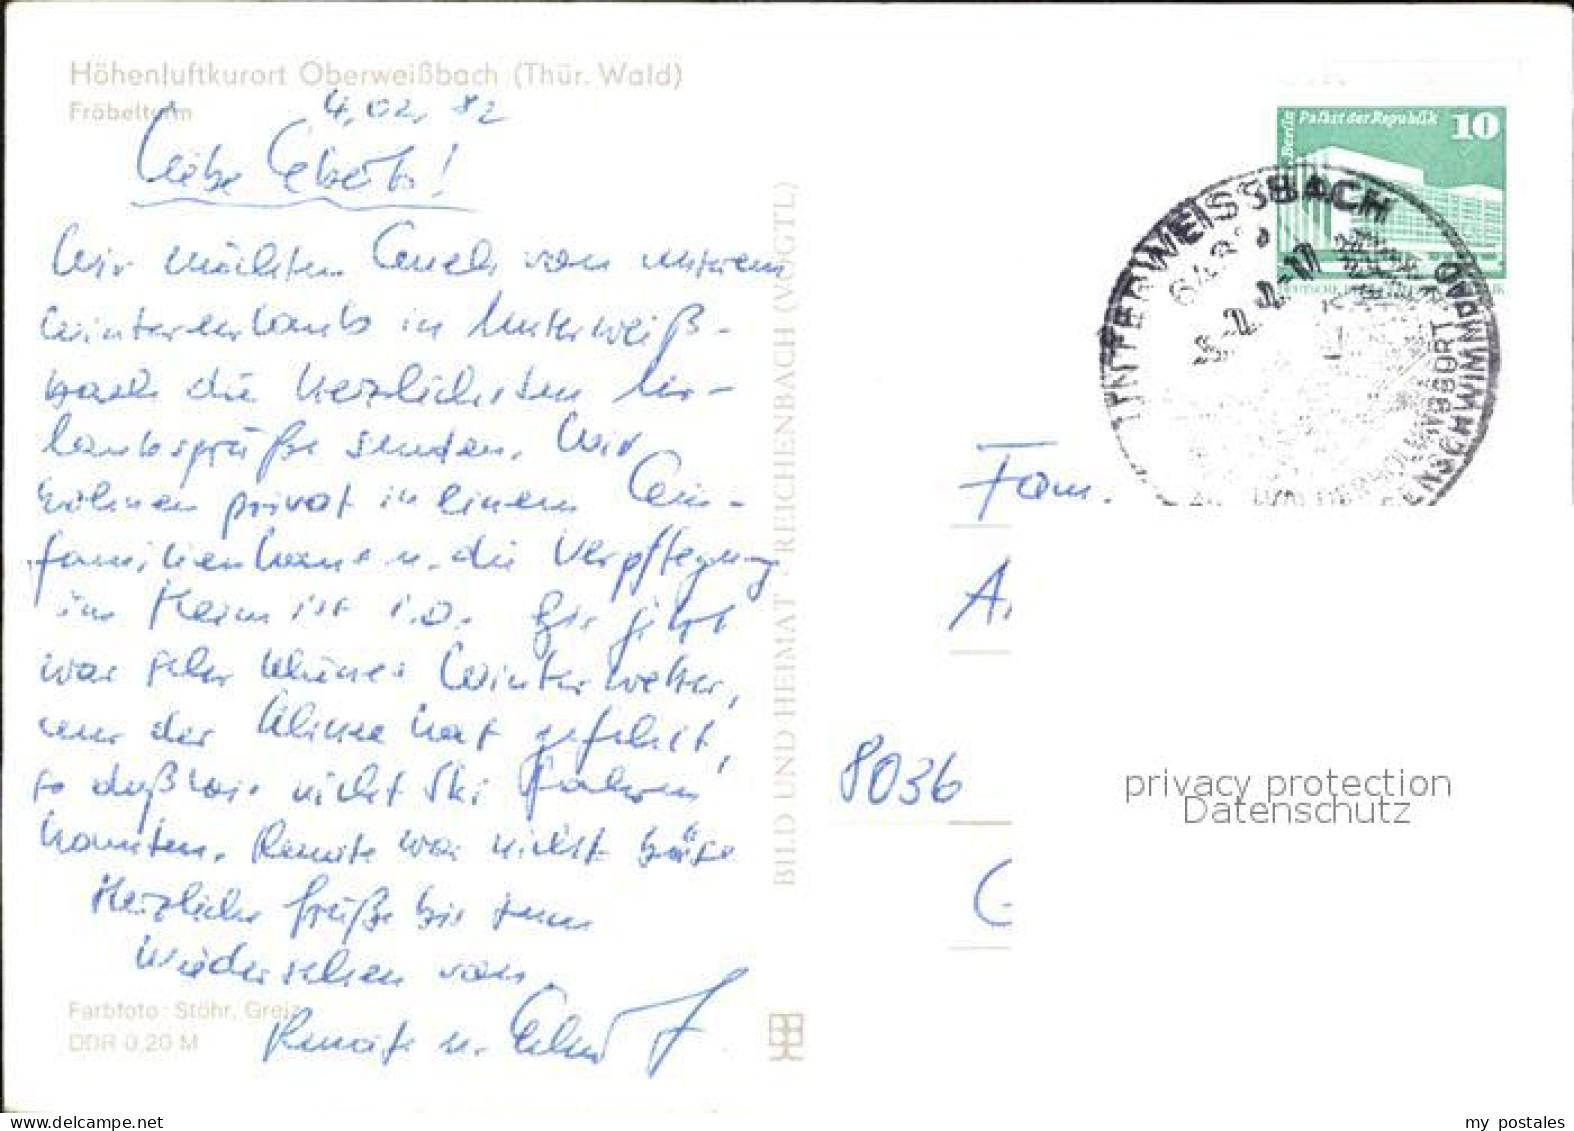 Höhenluftkurort Oberweißbach (Thür. Wald)
Fröbelturm
4.02.82
Liebe Eberts!
Wir möchten Euch von unserem
Winterurlaub in Unterweiß-
bach die herzlichsten Ur-
laubsgrüße senden. Wir
wohnen privat in einem Ein-
familienhaus u. die Verpflegung
im Heim ist i.O. Bis jetzt
war sehr schönes Winterwetter,
nur der Schnee hat gefehlt,
so daß wir nicht Ski fahren
konnten. Renate war nicht böse
Herzliche Grüße bis zum
Wiedersehen von
Renate u.
Farbfoto: Stöhr, Greiz
DDR 0,20 M
BILD UND HEIMAT · REICHENBACH (VOGTL)
Berlin
Palast der Republik
10
UNTERWEISSBACH
Fam.
8036
privacy protection
Datenschutz
my postales